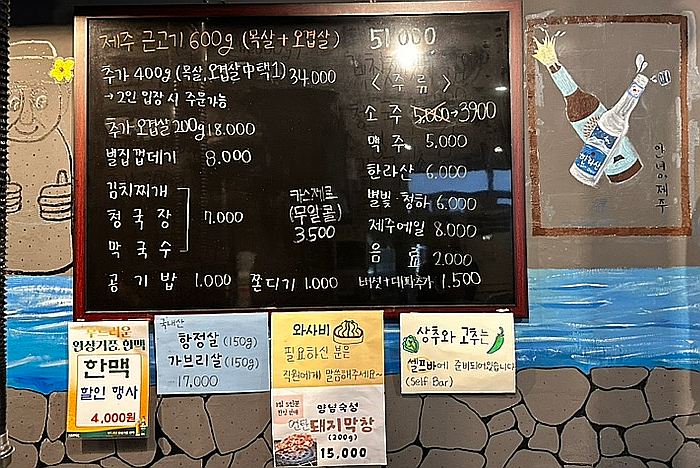 제주 근고기 600g (목살+오겹살) 51.000
추가 400g (목살, 오겹살 中 택1) 34.000
→ 2인 입장 시 주문가능
추가 오겹살 200g 18.000
별집껍데기 8.000
김치찌개
청국장 7.000
막국수
공기밥 1.000
쫀디기 1.000
카스제로
(무알콜)
3.500
<주류>
소주 5,000→3900
맥주 5.000
한라산 6.000
별빛 청하 6.000
제주에일 8.000
음료 2.000
버섯+대파추가 1.500
안녕 제주
한라산
부드러운
한맥
할인 행사
4,000원
국내산
항정살 (150g)
가브리살 (150g)
17,000
와사비
필요하신 분은
직원에게 말씀해주세요~
양념숙성
돼지막창
(200g)
15,000
상추와 고추는
셀프바에 준비되어있습니다
(Self Bar)